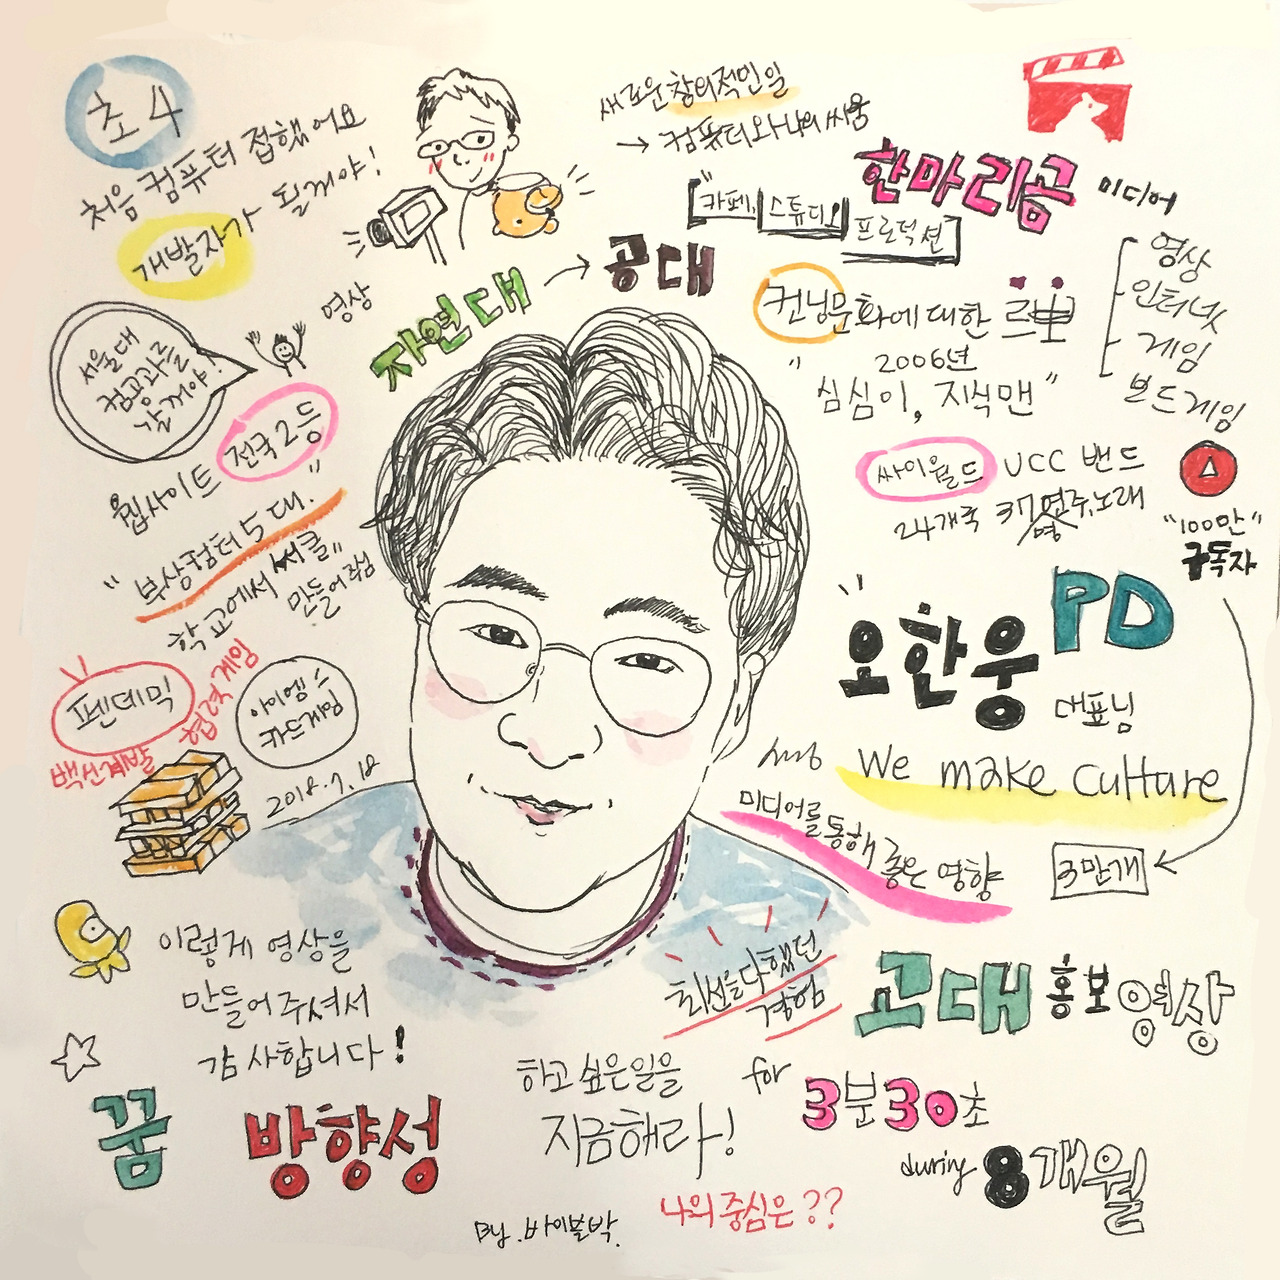 초4
처음 컴퓨터 접했어요
개발자가 될거야!
영상
새로운 창의적인 일
→ 컴퓨터와 나의 싸움
한마리곰 미디어
"카페, 스튜디오 프로덕션
영상
인터넷
게임
보드게임
자연대 → 공대
컨닝문화에 대한
2006년
"심심이, 지식맨"
서울대
컴공과를
갈거야!
전국 2등
웹사이트
"부상컴터 5대."
학교에서 "써클"
만들어 주심
싸이월드 UCC 밴드
24개국 37명 연주, 노래
"100만"
구독자
3만개
오한웅 PD
대표님
We make culture
미디어를 통해 좋은 영향
펜데믹
백신개발
협력게임
아이엠
카드게임
2018.7.18
이렇게 영상을
만들어주셔서
감사합니다!
최선을 다했던
경험
고대 홍보영상
for 3분 30초
during 8개월
꿈 방향성
하고 싶은 일을
지금해라!
나의 중심은??
By. 바이블박.